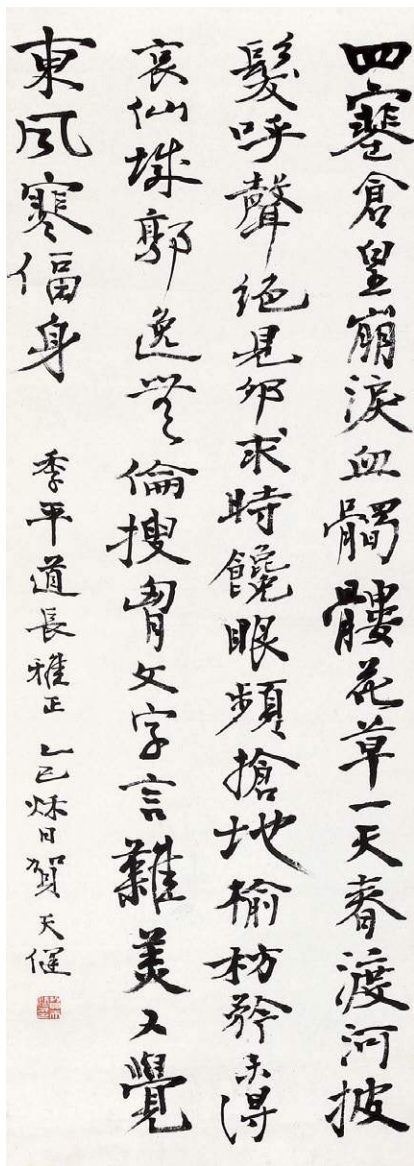 四塞倉皇崩淚血髑髏花草一天春渡河披
髮呼聲絕見卵求時饞眼頻搶地榆枋矜未得
哀仙城郭逸無倫搜胷文字言難美又覺
東風寒偪身
季平道長雅正 乙巳秌日賀天健